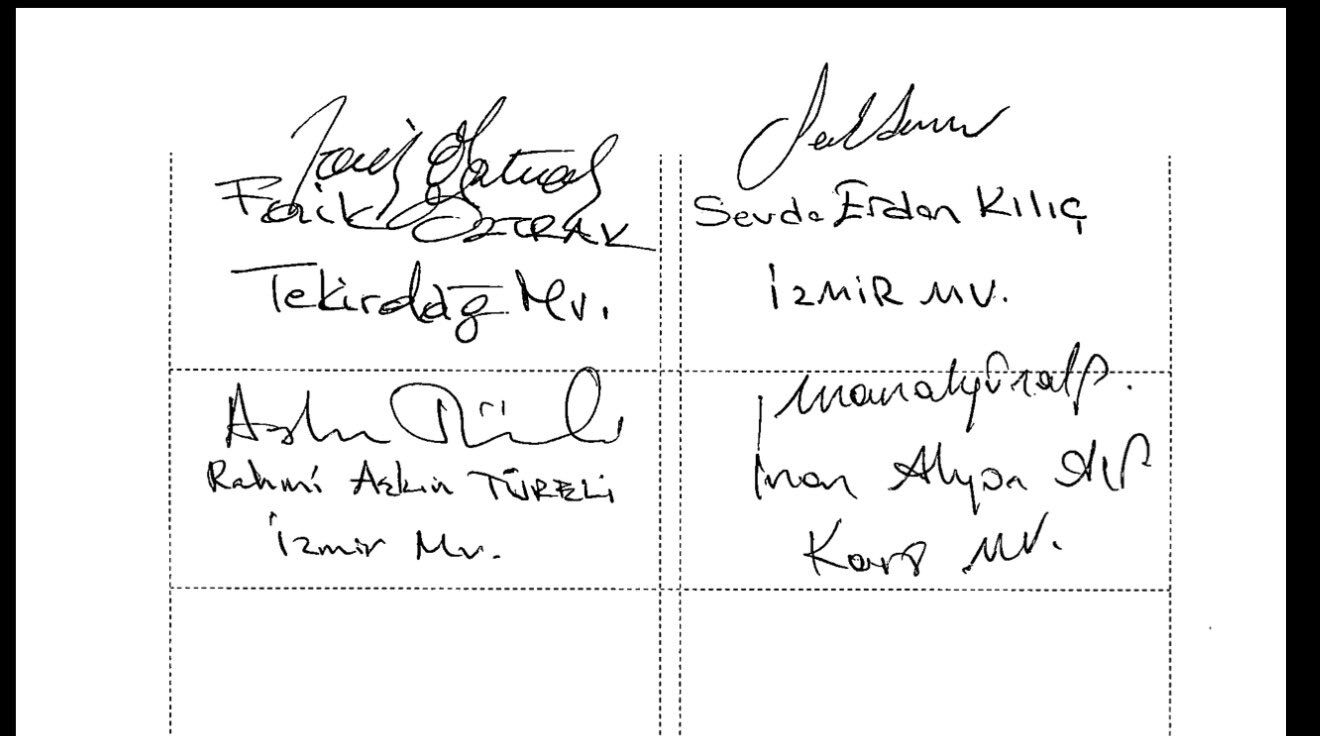 Faik ÖZTRAK
Tekirdağ Mv.
Sevda Erdan KILIÇ
İZMİR MV.
Rahmi Aşkın TÜRELİ
İzmir Mv.
İnan Akgün Alp
Kars MV.